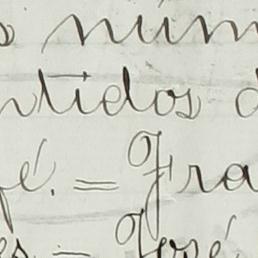 s núm
ntidos d
fé. = Fra
es = José